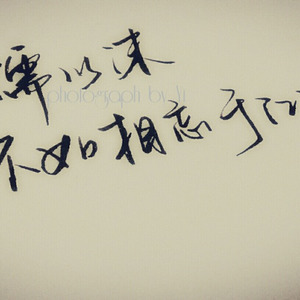 濡以沫
photograph by Yi
不如相忘于江